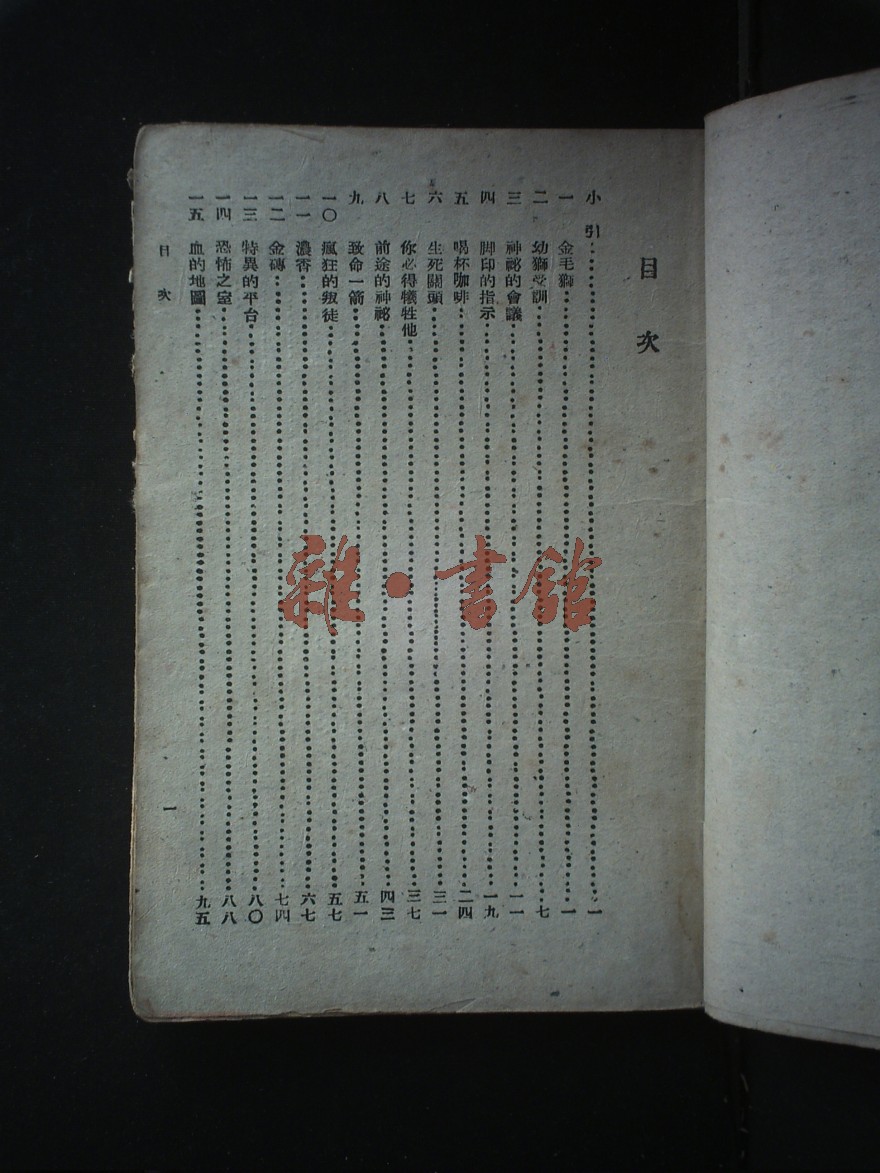 目次
小引……一
一 金毛獅……一
二 幼獅受訓……七
三 神祕的會議……一一
四 脚印的指示……一九
五 喝杯咖啡……二四
六 生死關頭……三一
七 你必得犧牲他……三七
八 前途的神祕……四三
九 致命一箭……五一
一〇 瘋狂的叛徒……五七
一一 濃香……六七
一二 金磚……七四
一三 特異的平台……八〇
一四 恐怖之室……八八
一五 血的地圖……九五
目次 一
雜·書館